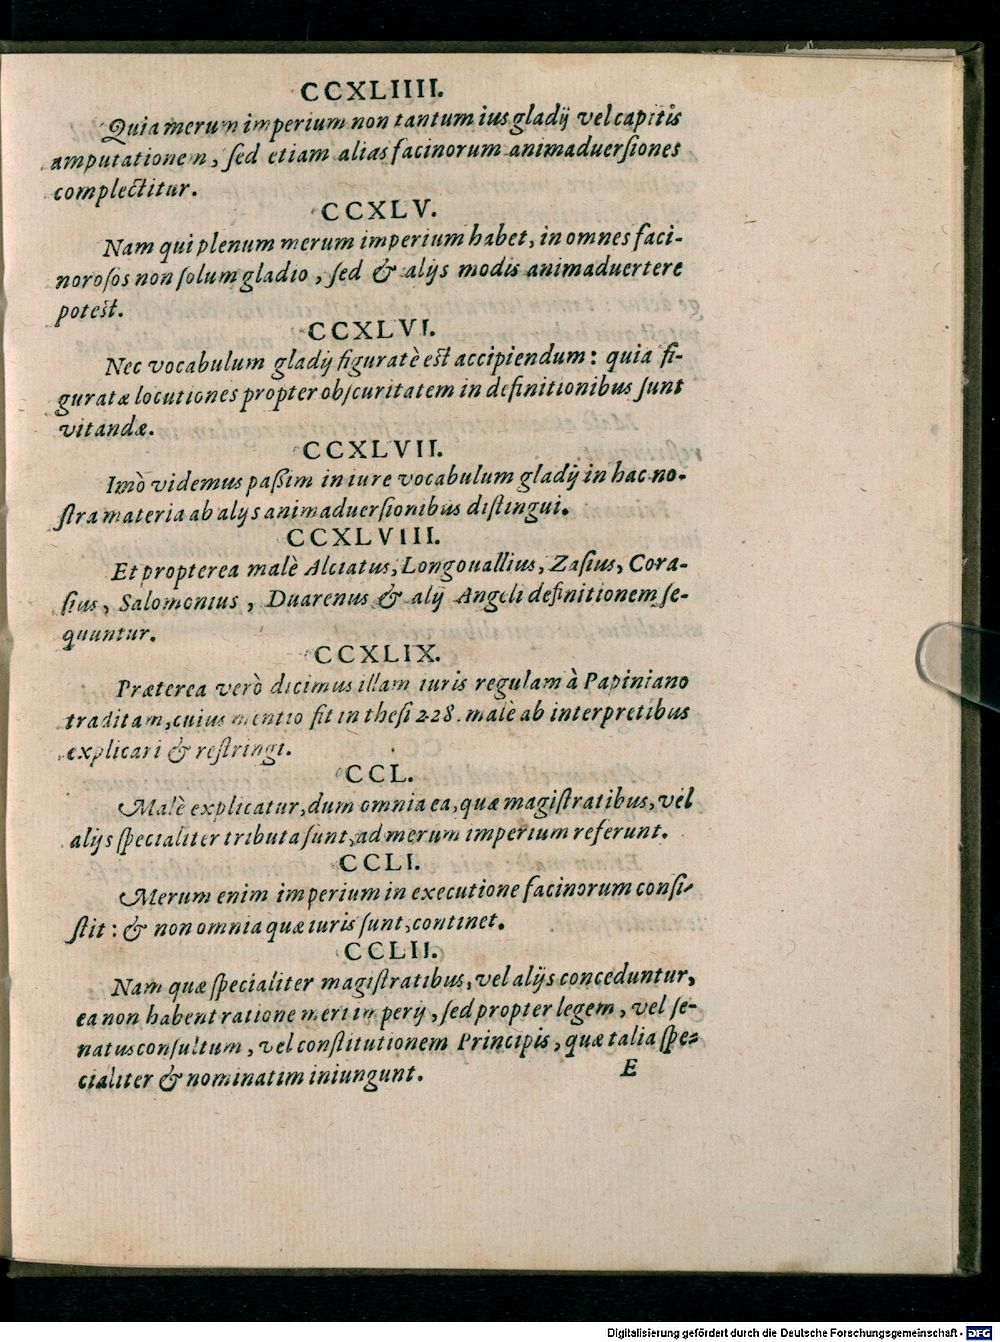 CCXLIIII.
Quia merum imperium non tantum ius gladij vel capitis
amputationem, sed etiam alias facinorum animaduersiones
complectitur.
CCXLV.
Nam qui plenum merum imperium habet, in omnes faci-
norosos non solum gladio, sed & alijs modis animaduertere
potest.
CCXLVI.
Nec vocabulum gladij figuratè est accipiendum: quia fi-
guratæ locutiones propter obscuritatem in definitionibus sunt
vitandæ.
CCXLVII.
Imò videmus passim in iure vocabulum gladij in hac no-
stra materia ab alijs animaduersionibus distingui.
CCXLVIII.
Et propterea malè Alciatus, Longouallius, Zasius, Cora-
sius, Salomonius, Duarenus & alij Angeli definitionem se-
quuntur.
CCXLIX.
Præterea verò dicimus illam iuris regulam à Papiniano
traditam, cuius mentio fit in thesi 228. malè ab interpretibus
explicari & restringi.
CCL.
Malè explicatur, dum omnia ea, quæ magistratibus, vel
alijs specialiter tributa sunt, ad merum imperium referunt.
CCLI.
Merum enim imperium in executione facinorum consi-
stit: & non omnia quæ iuris sunt, continet.
CCLII.
Nam quæ specialiter magistratibus, vel alijs conceduntur,
ea non habent ratione meri imperij, sed propter legem, vel se-
natusconsultum, vel constitutionem Principis, quæ talia spe-
cialiter & nominatim iniungunt.
E
Digitalisierung gefördert durch die Deutsche Forschungsgemeinschaft - DFG